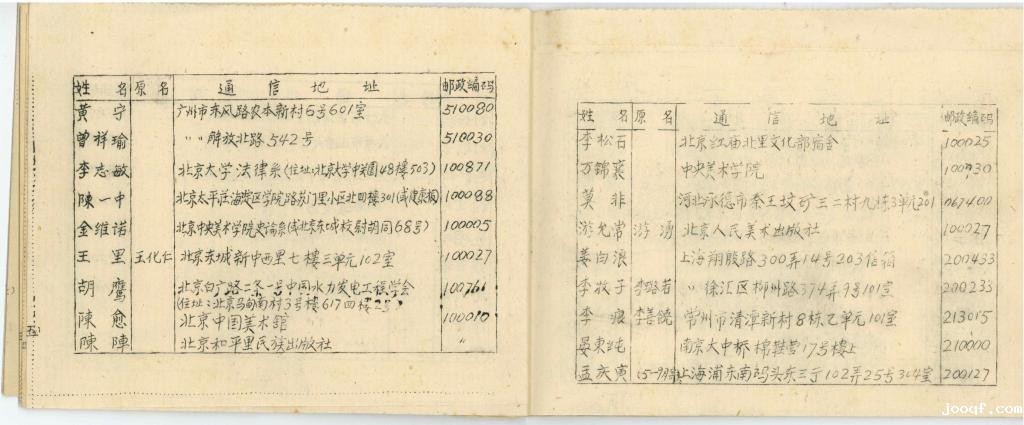 姓名 原名 通信地址 邮政编码
黄守 广州市东风路农本新村5号601室 510080
曾祥瑜 〃〃解放北路542号 510030
李志敏 北京大学法律系(住址:北京大学中关园48樓503) 100871
陳一中 北京太平庄海淀区学院路苏门里小区北四樓301 100088
金维诺 北京中央美术学院史論系(或北京东城校尉胡同68号) 100005
王里 王化仁 北京东城新中西里七樓三单元102室 100027
胡鹰 北京白广路二条一号中国水力发电工程学会 100761
(住址:北京马甸南村3号樓617四樓2号)
陳愈 北京中国美术館 100010
陳陣 北京和平里民族出版社 〃
五
姓名 原名 通信地址 邮政编码
李松石 北京红庙北里文化部宿舍 100025
万錦裏 中央美术学院 100730
莫非 河北承德市秦王坟矿三二村九栋3单元201 067400
游允常 游湧 北京人民美术出版社 100027
姜白浪 上海翔殷路300弄14号203信箱 200433
李牧子 李璐若 〃徐汇区柳州路374弄9号101室 200233
李痕 李善饒 常州市清潭新村8栋乙单元101室 213015
晏東純 南京大中桥棉鞋营17号樓上 210000
孟庆寅 上海浦东南码头东三宁102弄25号304室 200127
jooqf.com